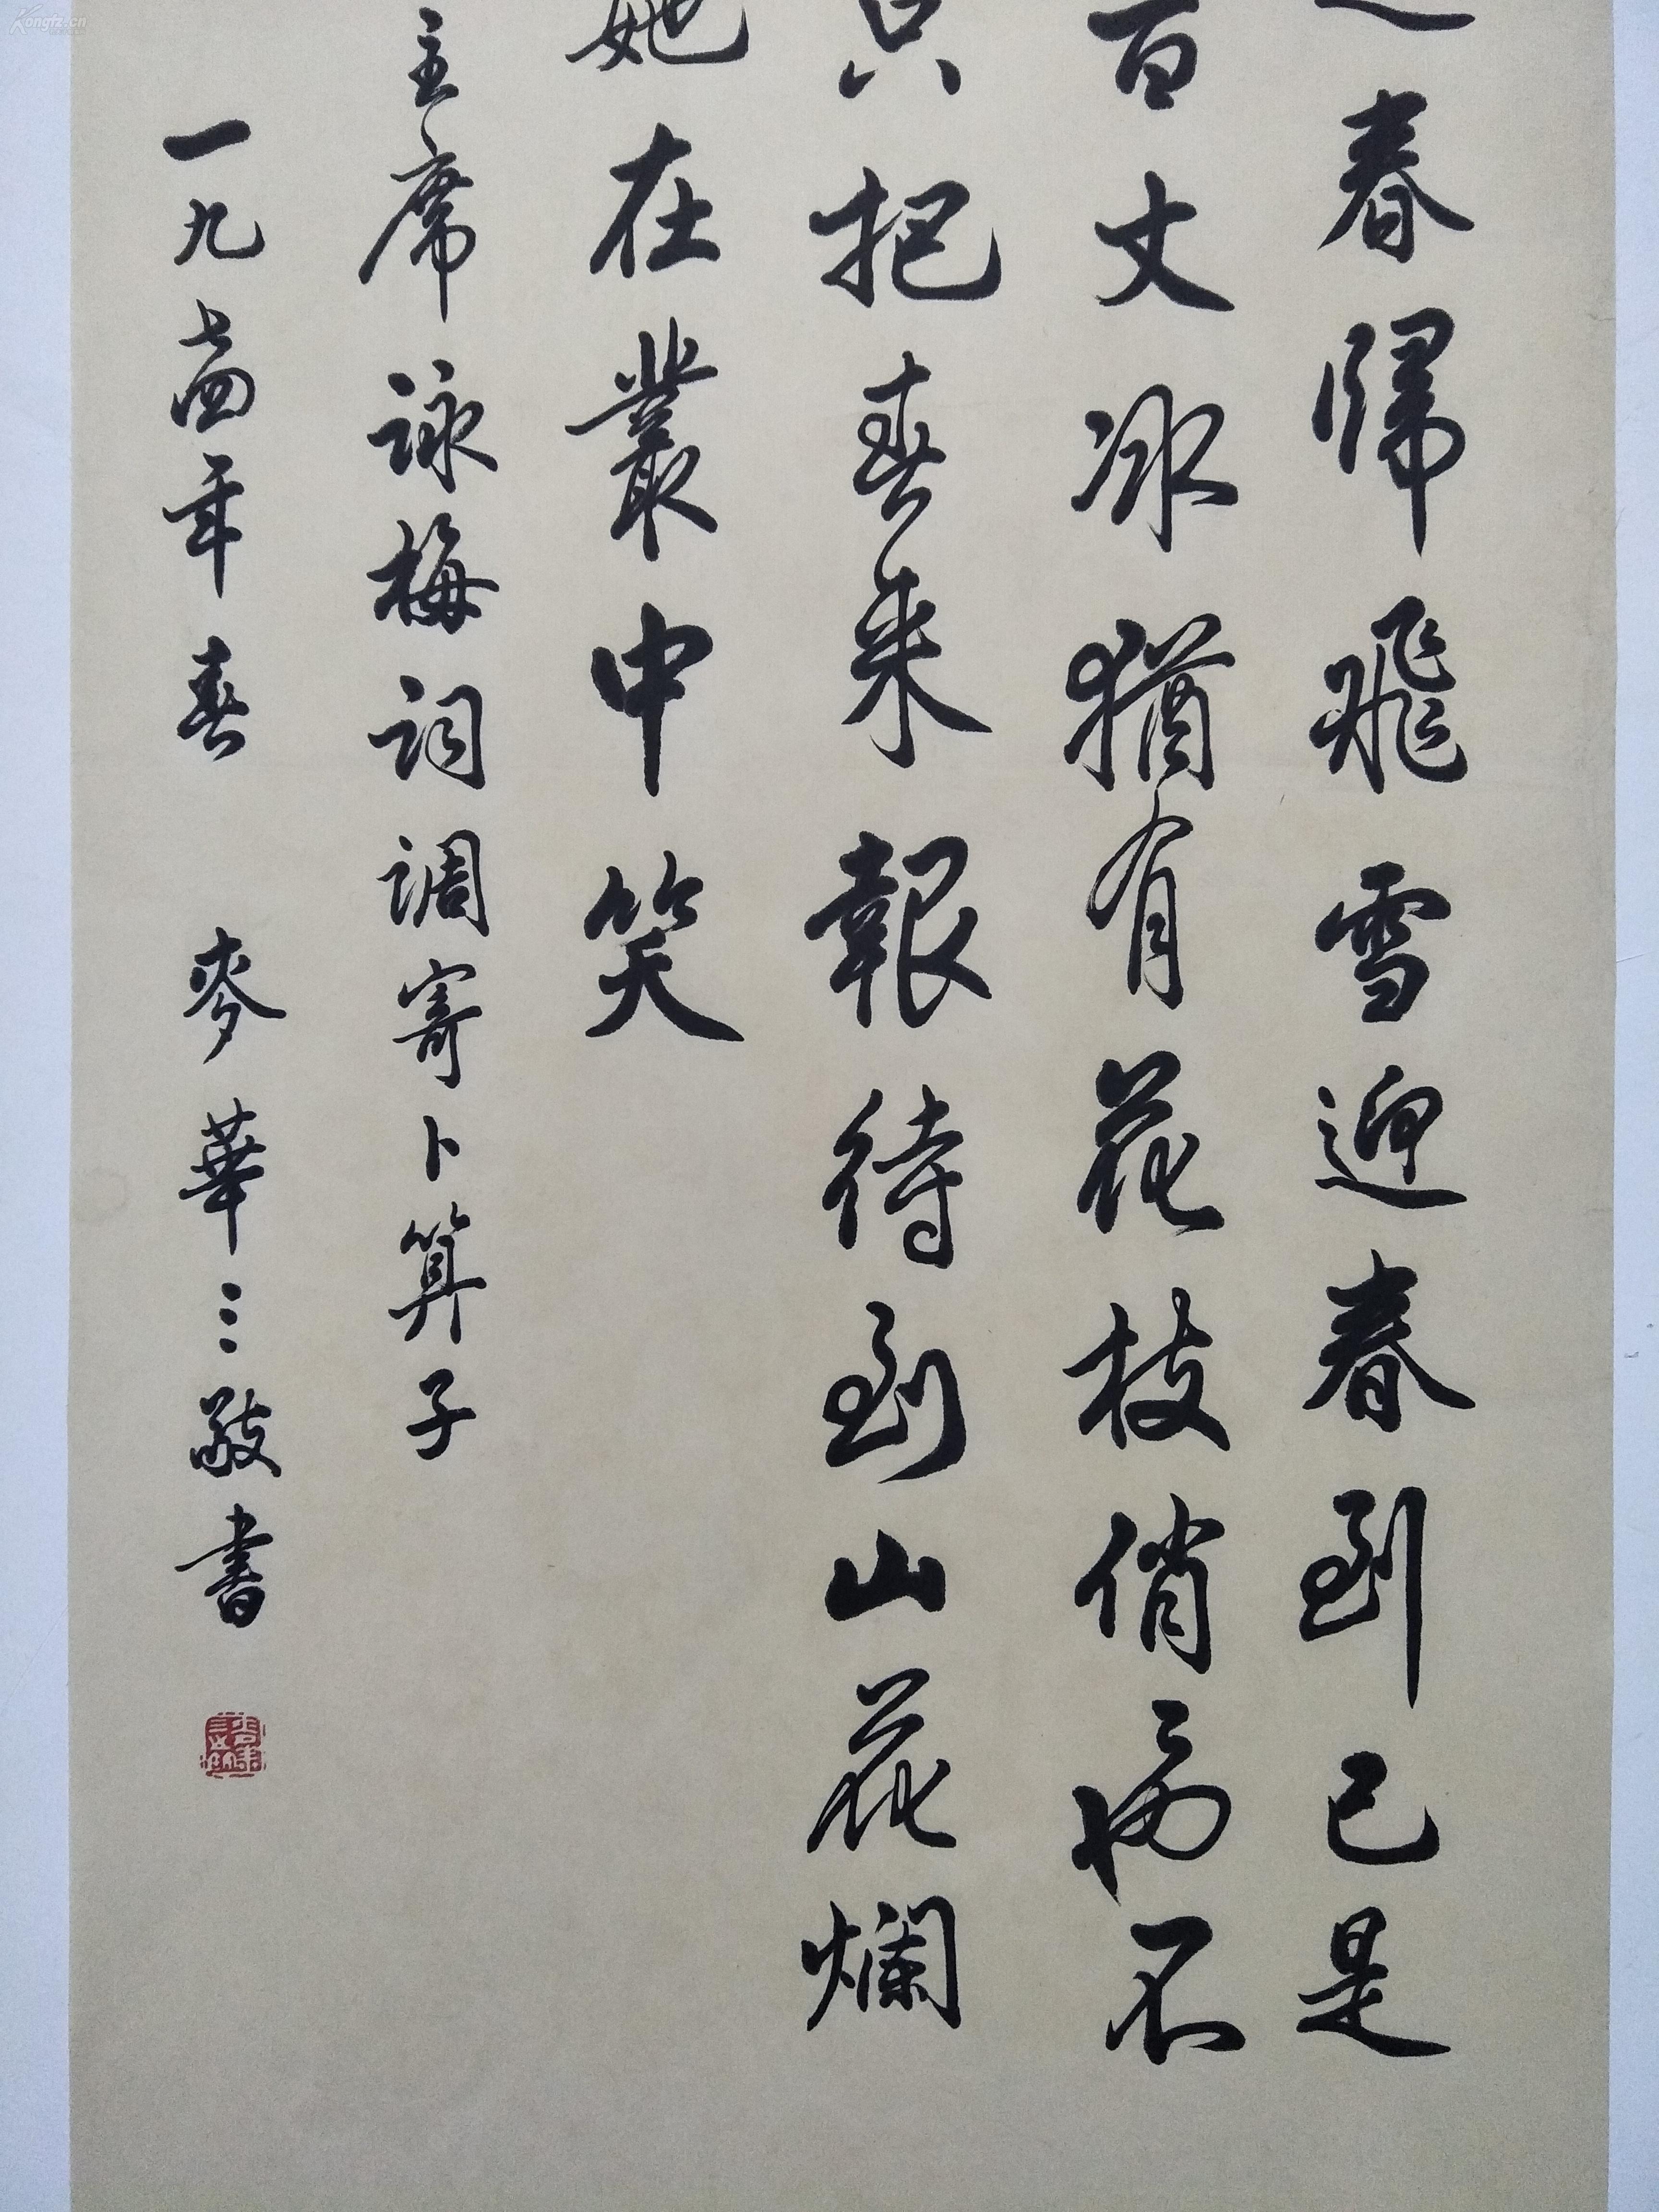 春歸飛雪迎春到已是
百丈冰猶有花枝俏俏不
只把春來報待到山花爛
她在叢中笑
主席詠梅詞調寄卜算子
一九七四年春 麥華三敬書
Kongfz.cn